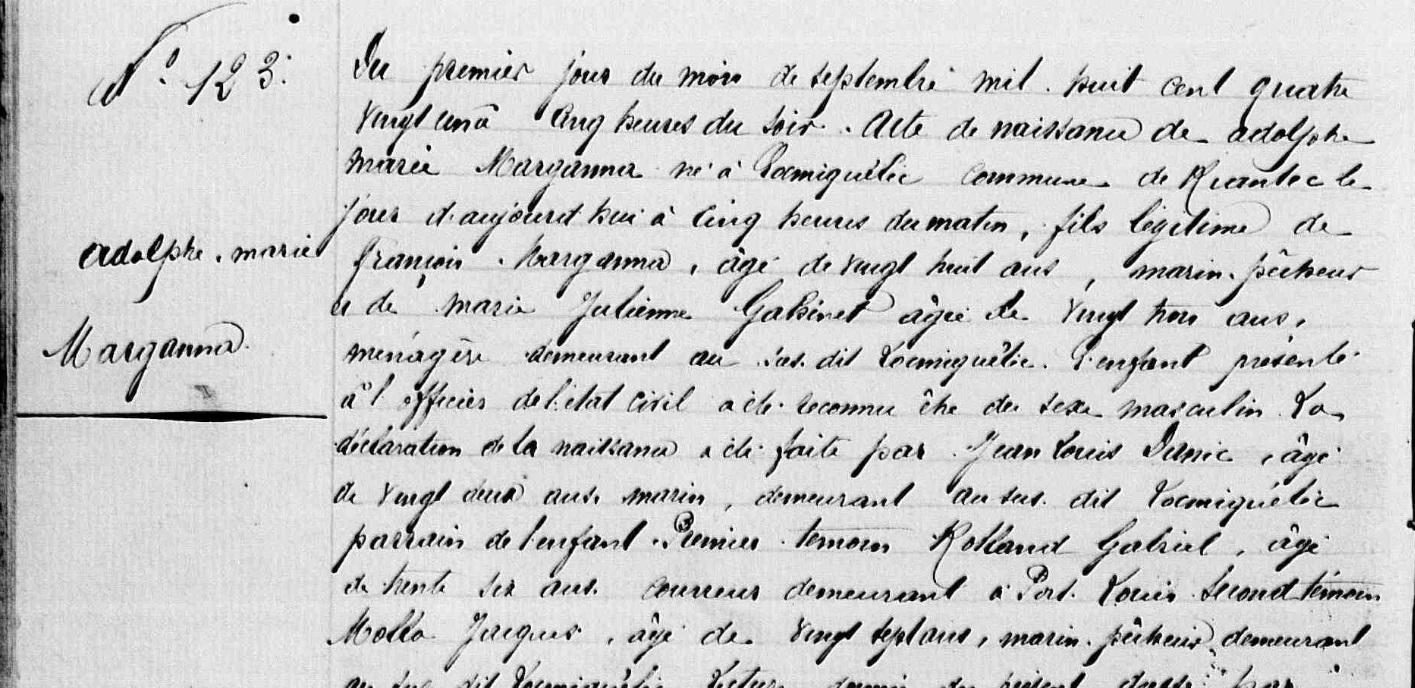 N° 123.
adolphe. marie
Marganna.
Du premier jour du mois de septembre mil. huit cent quatre
vingt un à Cinq heures du soir. Acte de naissance de adolphe
marie Marganna né à Locmiquélic commune de Riantec le
jour d'aujourd'hui à Cinq heures du matin, fils légitime de
françois Marganna, âgé de vingt huit ans, marin. pêcheur
et de marie Julienne Gabinet âgée de vingt trois ans,
ménagère demeurant au sus. dit Locmiquélic. L'enfant présenté
à l'officier de l'état civil a été reconnu être du sexe masculin. La
déclaration de la naissance a été faite par Jean Louis Dunic, âgé
de vingt deux ans. marin, demeurant au sus. dit Locmiquélic
parrain de l'enfant. Premier témoin Rolland Gabriel, âgé
de trente six ans. couvreur demeurant à Port. Louis. Second témoin
Mollo Jacques, âgé de vingt sept ans, marin. pêcheur, demeurant
au sus. dit Locmiquélic Lecture du présent par